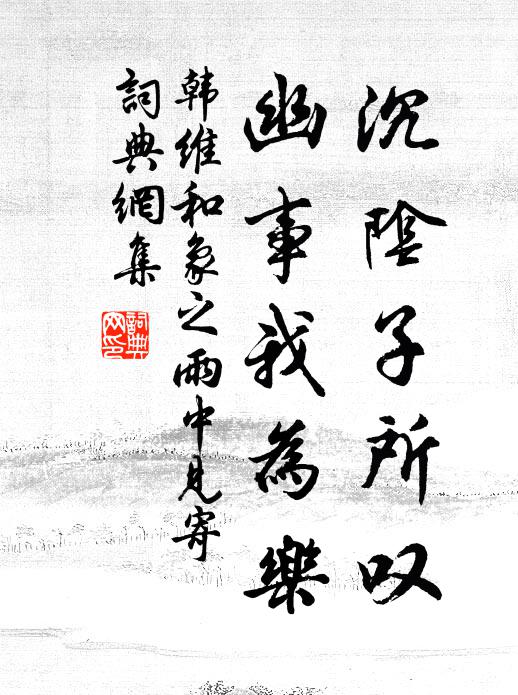 沉陰子所叹
幽事我為樂
韩維和象之雨中見寄
詞典網集
詞典
网印